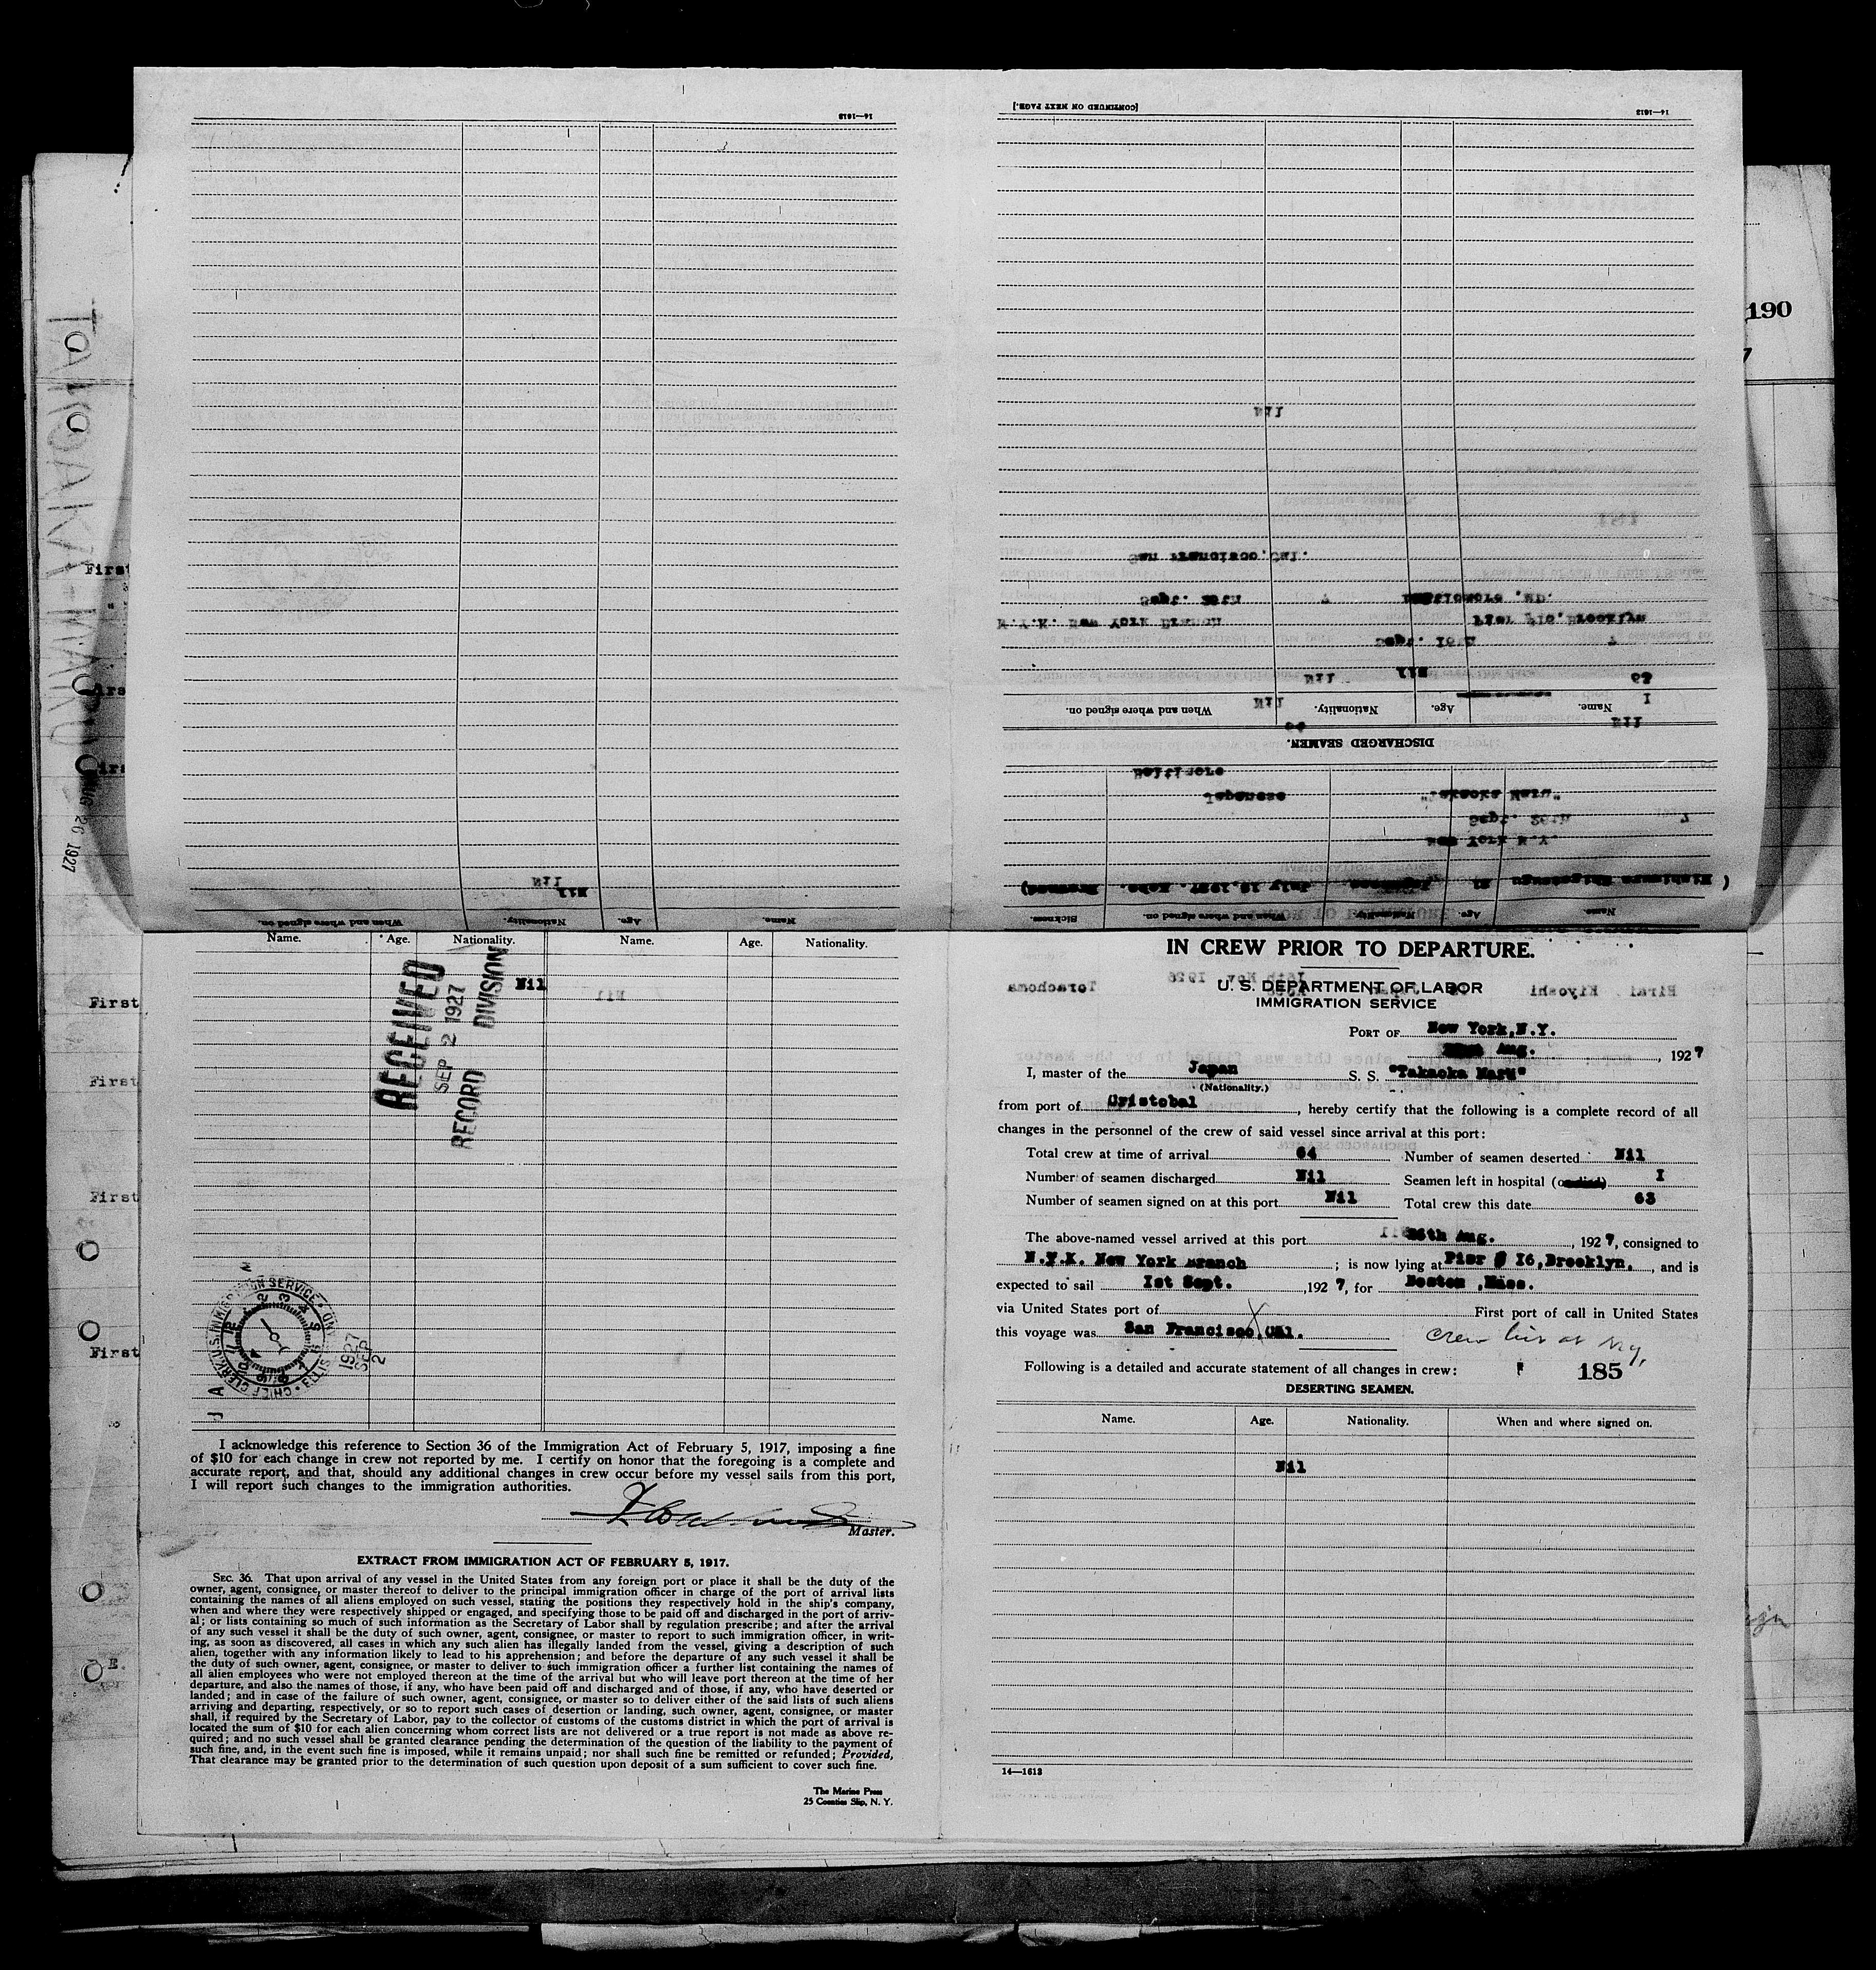 14—1613
[CONTINUED ON NEXT PAGE.]
14—1613
190
7
TAKAOKA-MARU
AUG 26 1927
First
Nil
San Francisco, Cal.
Sept. 26th
Baltimore, Md.
N.Y.K. New York Branch
Pier
Brooklyn
7
Nil
Nil
63
Name.
Age.
Nationality.
When and where signed on.
Nil
1
Nil
DISCHARGED SEAMEN.
Baltimore
Japanese
"Takaoka Maru"
7
New York N.Y.
21
July 12, 1927. Kobe.
Name.
Age.
Nationality.
When and where signed on.
Sickness.
Nil
Nil
Name.
Age.
Nationality.
When and where signed on.
Name. Age. Nationality. Name. Age. Nationality.
Nil
Nil
RECEIVED
SEP 2 1927
RECORD DIVISION
First
First
First
First
U.S. IMMIGRATION SERVICE
CHIEF CLERK
ELLIS
1927
SEP
2
I acknowledge this reference to Section 36 of the Immigration Act of February 5, 1917, imposing a fine
of $10 for each change in crew not reported by me. I certify on honor that the foregoing is a complete and
accurate report, and that, should any additional changes in crew occur before my vessel sails from this port,
I will report such changes to the immigration authorities.
Master.
EXTRACT FROM IMMIGRATION ACT OF FEBRUARY 5, 1917.
SEC. 36. That upon arrival of any vessel in the United States from any foreign port or place it shall be the duty of the
owner, agent, consignee, or master thereof to deliver to the principal immigration officer in charge of the port of arrival lists
containing the names of all aliens employed on such vessel, stating the positions they respectively hold in the ship's company,
when and where they were respectively shipped or engaged, and specifying those to be paid off and discharged in the port of arriv-
al; or lists containing so much of such information as the Secretary of Labor shall by regulation prescribe; and after the arrival
of any such vessel it shall be the duty of such owner, agent, consignee, or master to report to such immigration officer, in writ-
ing, as soon as discovered, all cases in which any such alien has illegally landed from the vessel, giving a description of such
alien, together with any information likely to lead to his apprehension; and before the departure of any such vessel it shall be
the duty of such owner, agent, consignee, or master to deliver to such immigration officer a further list containing the names of
all alien employees who were not employed thereon at the time of the arrival but who will leave port thereon at the time of her
departure, and also the names of those, if any, who have been paid off and discharged and of those, if any, who have deserted or
landed; and in case of the failure of such owner, agent, consignee, or master so to deliver either of the said lists of such aliens
arriving and departing, respectively, or so to report such cases of desertion or landing, such owner, agent, consignee, or master
shall, if required by the Secretary of Labor, pay to the collector of customs of the customs district in which the port of arrival is
located the sum of $10 for each alien concerning whom correct lists are not delivered or a true report is not made as above re-
quired; and no such vessel shall be granted clearance pending the determination of the question of the liability to the payment of
such fine, and, in the event such fine is imposed, while it remains unpaid; nor shall such fine be remitted or refunded; Provided,
That clearance may be granted prior to the determination of such question upon deposit of a sum sufficient to cover such fine.
The Marine Press
25 Coenties Slip, N. Y.
IN CREW PRIOR TO DEPARTURE.
U. S. DEPARTMENT OF LABOR
IMMIGRATION SERVICE
Hirai Kiyoshi
15th Nov. 1926
Torachoma
PORT OF New York, N.Y.
Aug. , 1927
I, master of the Japan S. S. "Takaoka Maru"
(Nationality.)
from port of Cristobal , hereby certify that the following is a complete record of all
changes in the personnel of the crew of said vessel since arrival at this port:
Total crew at time of arrival 64 Number of seamen deserted Nil
Number of seamen discharged Nil Seamen left in hospital (or died) 1
Number of seamen signed on at this port Nil Total crew this date 63
The above-named vessel arrived at this port 26th Aug. , 1927, consigned to
N.Y.K. New York Branch ; is now lying at Pier # 16, Brooklyn. , and is
expected to sail 1st Sept. , 1927, for Boston ,Mass.
via United States port of X First port of call in United States
this voyage was San Francisco, Cal. crew list at N.Y.
Following is a detailed and accurate statement of all changes in crew: 185
DESERTING SEAMEN.
Name. Age. Nationality. When and where signed on.
Nil
14—1613